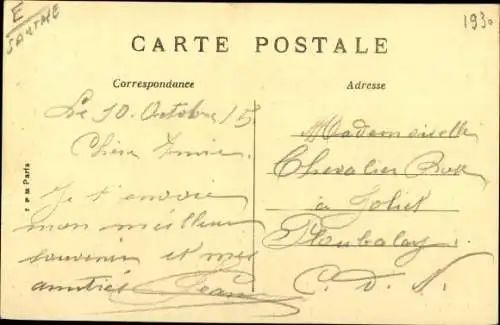 E
SARTHE
193
CARTE POSTALE
Correspondance
Adresse
Le 10. Octobre 15
Chère Amie.
Je t'envoie
mon meilleur
souvenir et mes
amitiés Jean
Mademoiselle
Chevalier
à Joliet
Ploubalay.
C. D. N.
Paris